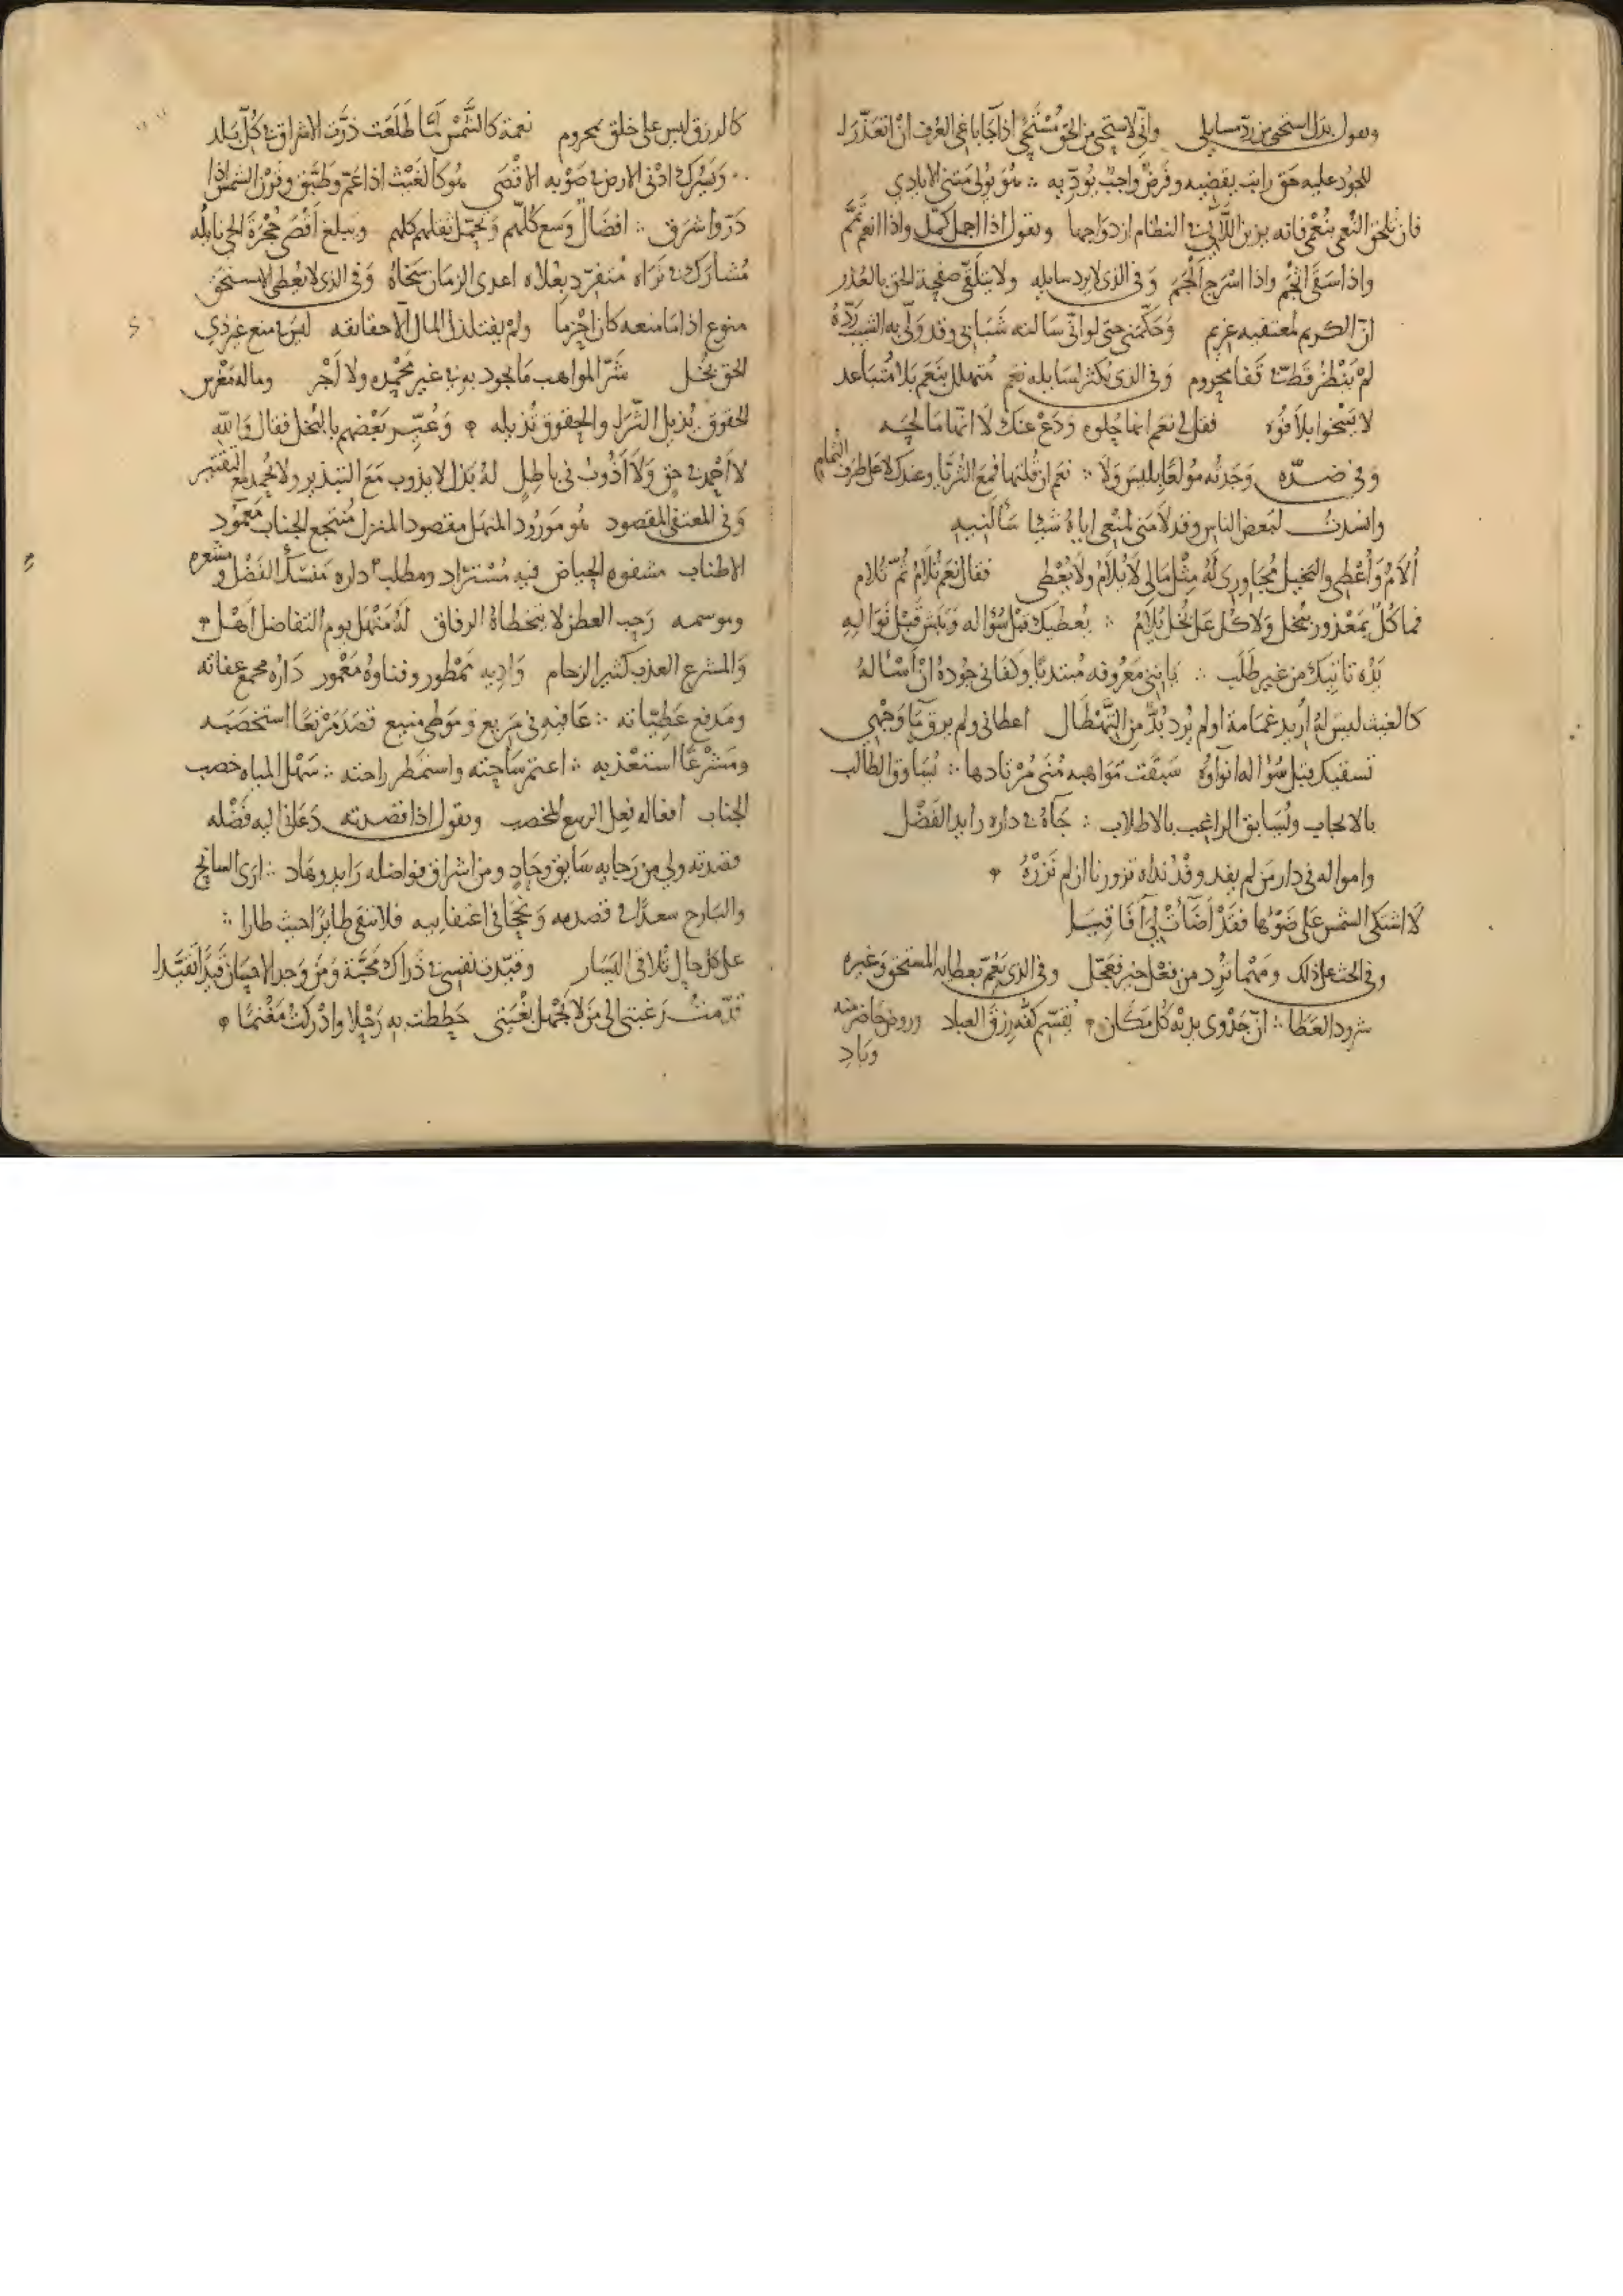 ونقول بذل استحى من رد سايلى وانى لاستحى من الحق مستحى اذا جا باغى العرف ان اتعذرا
للجود عليه حق راتب يقضيه وفرض واجب يودّيه هو يولى مثنى الايادي
فان تلحق النعمى بنعمى فانه يزين اللآلئ فى النظام ازدواجها ونقول اذا اجمل كمل واذا انعم تمم
واذا سقى اثجم واذا اسرج الجم وفى الذى لا يرد سايله ولا يتلقى صفحة الحق بالعذر
انّ الكريم لمعتفيه غريم وحكّمنى حتى لو انى سالته شبابى وقد ولى به الشيب ردّهُ
لم ينظر قط فى قفا محروم وفى الذى يكثر لسايله نعم متهلل بنعم بلا متباعد
لا يسخوا بلا فوه فقل لى نعم انما حلوه ودع عنك لا انما مالحه
وفى ضدّه وجدته مولعًا بليس ولا نعم ان قلتها فمع الثريا وعندك لا على طرف الثمام
وانشدت لبعض الناس وقد لامنى لمنعى اياه شيئا سالنيه
أُلام وأُعطى والبخيل مجاورى له مثل مالى لا يلام ولا يعطى فقال نعم تلام ثم تلام
فما كل بمعذور ببخل ولا كل على بخل يلام يعطيك قبل سؤاله ويبش قبل نواله
بَدْه تاتيك من غير طلب ياتينى معروفه مبتديًا وكفانى جوده ان اساله
كالغيث ليس له اريد غمامة او لم يرد بدّ من التهطال اعطانى ولم يرق ما وجهي
تسقيك قبل سؤاله انوآوه سبقت مواهبه منى مرتادها يساوق الطالب
بالايجاب ويسابق الراغب بالاطلاب جاه فى داره رايد الفضل
وامواله فى دار من لم يفد وفد نداه تزورنا ان لم نزره
لا اشتكى الشمس على ضوئها فقد اضأت لى آفاقيا
وفى الحث على ذلك ومهما ترد من فعل خير فعجل وفى الذى يعم بعطايه المستحق وغيره
شرود العطا انّ جدوى يديه كل مكان يقسم كفه رزق العباد وروض حاضر منه
وباد
كالرزق ليس على خلق بمحروم نعمة كالشمس لمّا طلعت ذرّت الاشراق فى كل بلد
ويشرك ادنى الارض فى صوبه الاقصى هو كالغيث اذا عم وطبق وقرن الشمس اذا
ذرّ واشرق افضال وسع كلهم وتحمّل ثقلهم كلهم ويبلغ اقصى حجرة الحى نايله
مشارك فى ثراه منفرد بعلاه اعدى الزمان سخاه وفى الذى لا يعطى الا مستحق
منوع اذا ما منعه كان احزما ولم يفتلذ المال الا حقائقه ليس منع غير ذي
الحق بخل شرّ المواهب ما تجود به فى غير محمده ولا اجر وماله مغرس
الحقوق يذبل الثرا والحقوق تذبله وعُيّر بعضهم بالبخل فقال والله
لا اجمد فى حق ولا اذوب فى باطل له بذل لا يذوب مع التبذير ولا يجمد مع التقتير
وفى المعتفى المقصود هو مورود المنهل مقصود المنزل منتجع الجناب معمود
الاطناب مشفوه الحياض فيه مستراد ومطلب داره منسك الفضل ومشعره
وموسمه رحب العطن لا تتخطاه الرفاق له منهل يوم التفاضل اهل
والمشرع العذب كثير الزحام واديه ممطور وفناوه معمور داره مجمع عفاته
ومدفع عطيّاته عافيه فى مربع وموطى منيع قصد مرتعًا استخصبه
ومشرعًا استعذبه اعتم ساحته واستمطر راحته سهل المباه خصب
الجناب افعاله فعل الربيع المخصب ونقول اذا قصدته دعانى اليه فضله
قصدته ولى من رجايه سابق وحاد ومن اشراق فواضله رايد وهاد ارى السانح
والبارح سعدًا فى قصده ونجحا فى اعتفايه فلا نتقى طايرًا حيث طارا
على كل حال تلاقى اليسار وقيّدت نفسى فى ذراك محبة ومن وجد الاحسان قيدا تقيدا
قدّمت رغبتى الى من لا تجهل بغيتى حططت به رحلا وادركت مغنمًا